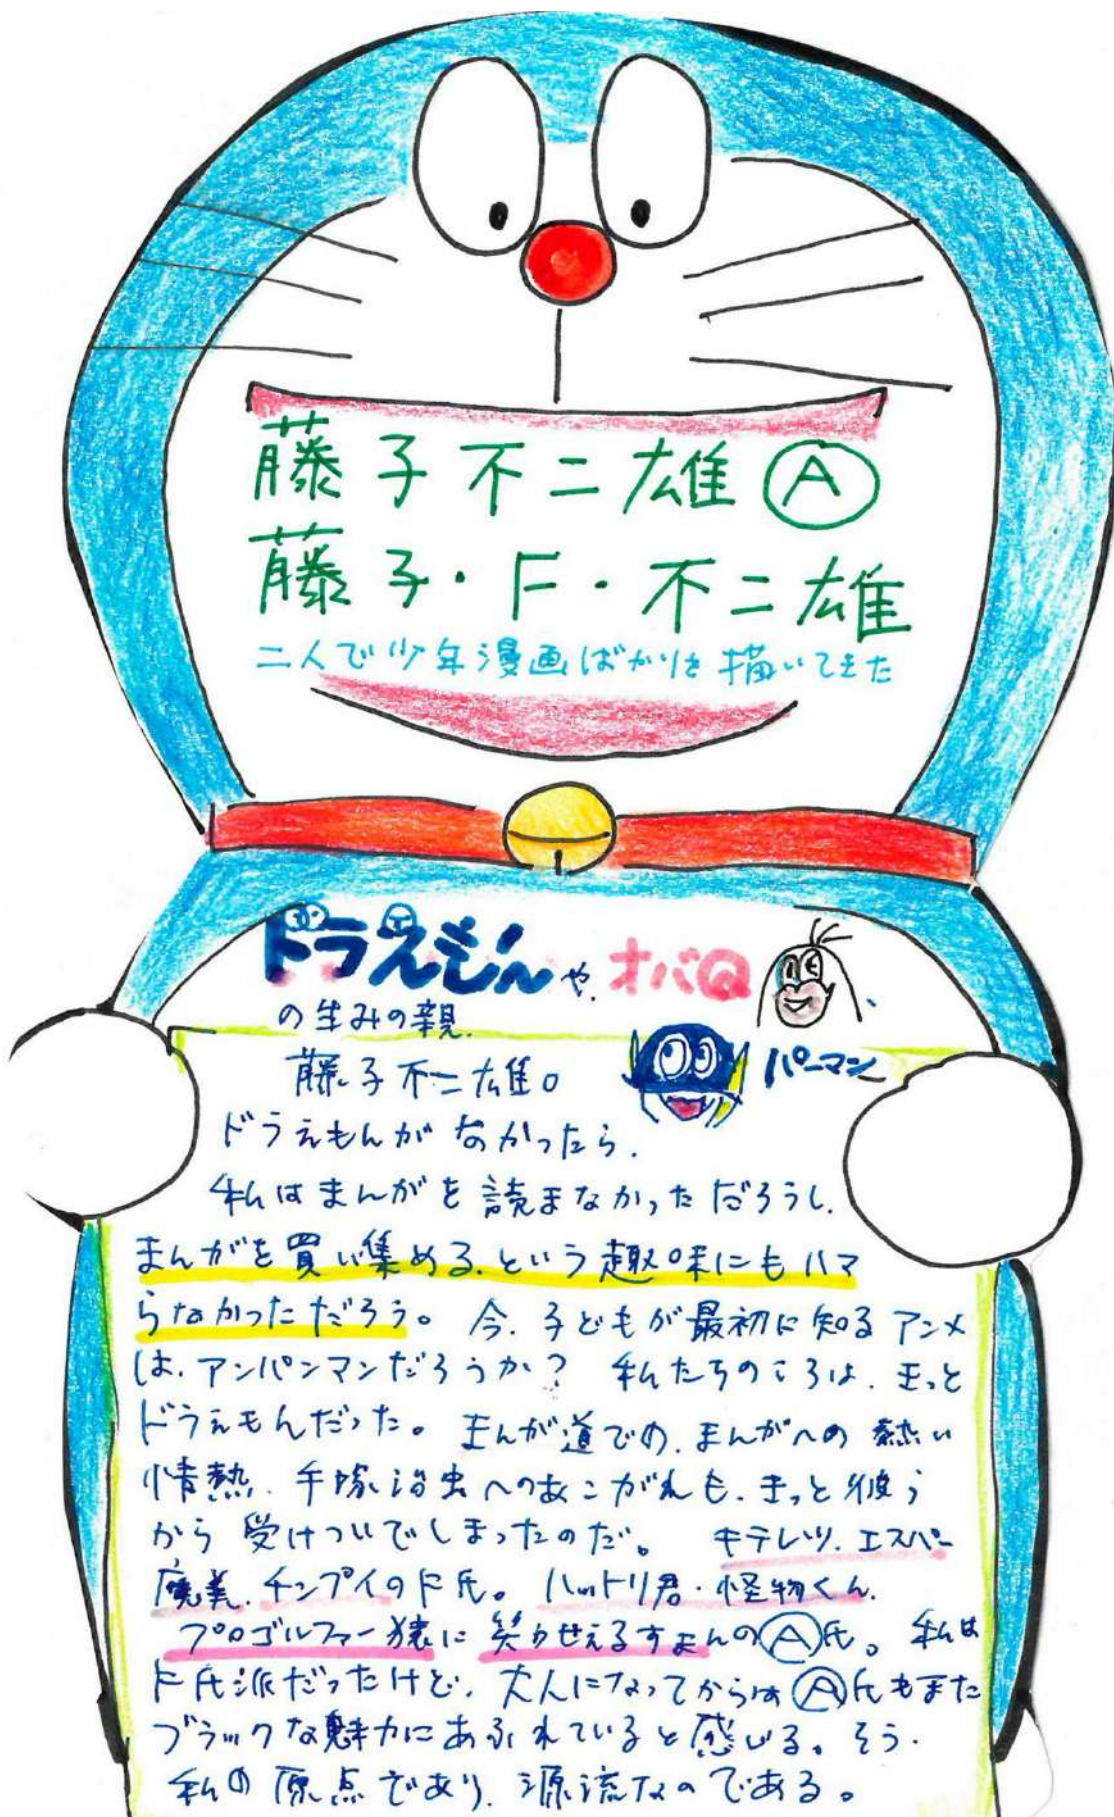 藤子不二雄Ⓐ
藤子・F・不二雄
二人で少年漫画ばかりを描いてきた
ドラえもんや、オバQ、
の生みの親、
パーマン
藤子不二雄。
ドラえもんがなかったら、
私はまんがを読まなかっただろうし、
まんがを買い集める、という趣味にもハマ
らなかっただろう。今、子どもが最初に知るアンメ
は、アンパンマンだろうか? 私たちのころは、きっと
ドラえもんだった。まんが道での、まんがへの熱い
情熱、手塚治虫へのあこがれも、きっと彼ら
から受けついでしまったのだ。キテレツ、エスパー
魔美、チンプイのF氏。ハットリ君・怪物くん、
プロゴルファー猿に笑ゥせえるすまんのⒶ氏。私は
F氏派だったけど、大人になってからはⒶ氏もまた
ブラックな魅力にあふれていると感じる。そう、
私の原点であり、源流なのである。